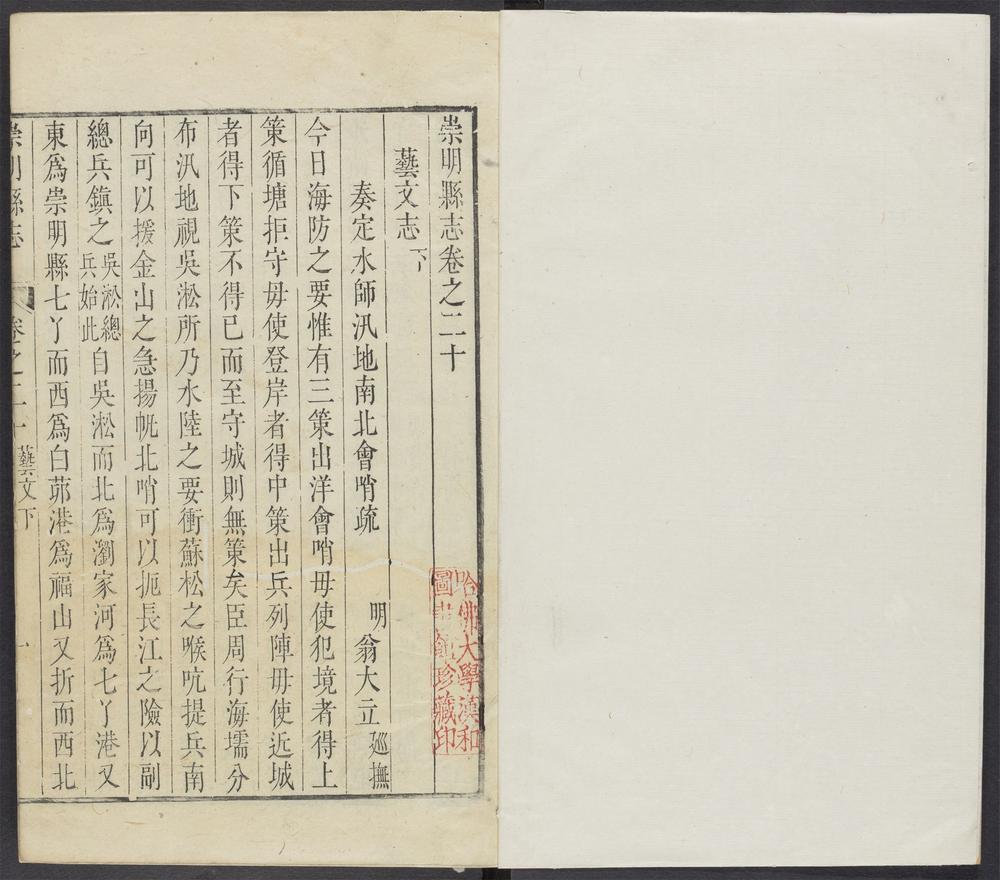 崇明縣志卷之二十
藝文志下
奏定水師汛地南北會哨疏 明翁大立廵撫
今日海防之要惟有三策出洋會哨毋使犯境者得上
策循塘拒守毋使登岸者得中策出兵列陣毋使近城
者得下策不得已而至守城則無策矣臣周行海壖分
布汛地視吳淞所乃水陸之要衝蘇松之喉吭提兵南
向可以援金山之急揚帆北哨可以扼長江之險以副
總兵鎮之吳淞總兵始此自吳淞而北爲瀏家河爲七丫港又
東爲崇明縣七丫而西爲白茆港爲福山又折而西北
崇明縣志 卷之二十藝文下 一
哈佛大學漢和
圖書館珍藏印